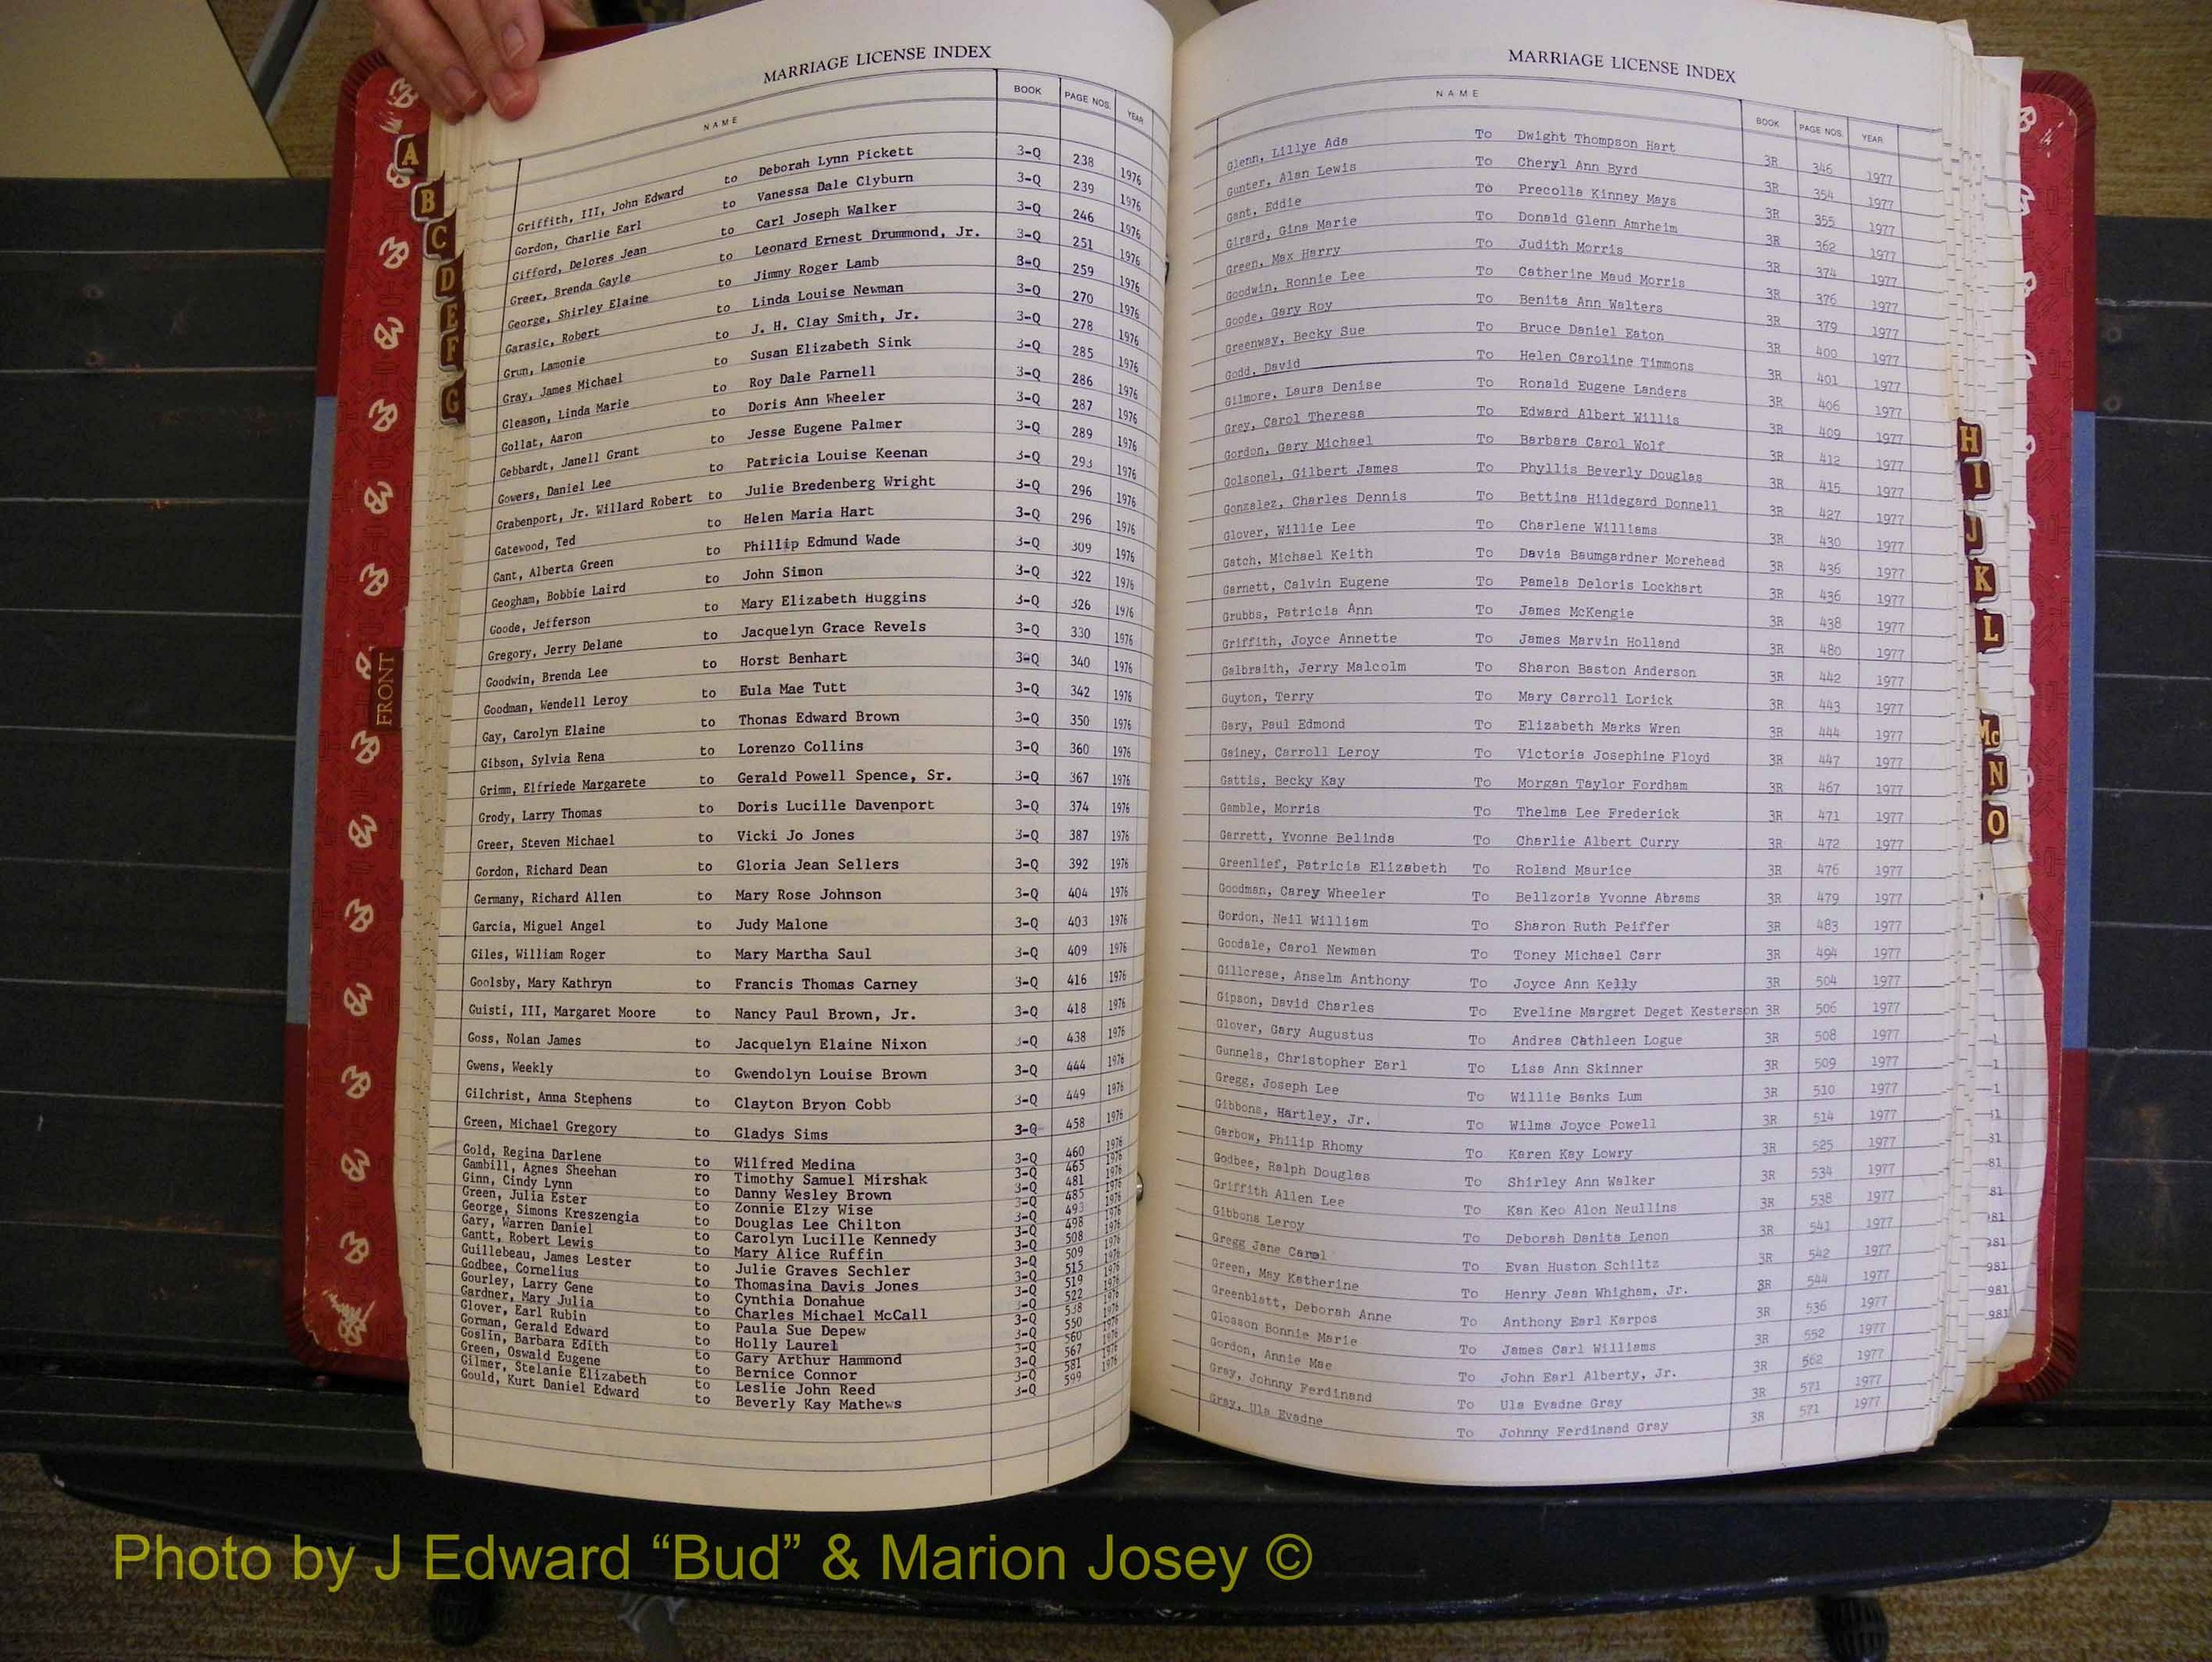 MARRIAGE LICENSE INDEX
NAME BOOK PAGE NOS. YEAR
Griffith, III, John Edward to Deborah Lynn Pickett 3-Q 238 1976
Gordon, Charlie Earl to Vanessa Dale Clyburn 3-Q 239 1976
Gifford, Delores Jean to Carl Joseph Walker 3-Q 246 1976
Greer, Brenda Gayle to Leonard Ernest Drummond, Jr. 3-Q 251 1976
George, Shirley Elaine to Jimmy Roger Lamb 3-Q 259 1976
Garasic, Robert to Linda Louise Newman 3-Q 270 1976
Grun, Lamonie to J. H. Clay Smith, Jr. 3-Q 278 1976
Gray, James Michael to Susan Elizabeth Sink 3-Q 285 1976
Gleason, Linda Marie to Roy Dale Parnell 3-Q 286 1976
Gollat, Aaron to Doris Ann Wheeler 3-Q 287 1976
Gebbardt, Janell Grant to Jesse Eugene Palmer 3-Q 289 1976
Gowers, Daniel Lee to Patricia Louise Keenan 3-Q 293 1976
Grabenport, Jr. Willard Robert to Julie Bredenberg Wright 3-Q 296 1976
Gatewood, Ted to Helen Maria Hart 3-Q 296 1976
Gant, Alberta Green to Phillip Edmund Wade 3-Q 309 1976
Geogham, Bobbie Laird to John Simon 3-Q 322 1976
Goode, Jefferson to Mary Elizabeth Huggins 3-Q 326 1976
Gregory, Jerry Delane to Jacquelyn Grace Revels 3-Q 330 1976
Goodwin, Brenda Lee to Horst Benhart 3-Q 340 1976
Goodman, Wendell Leroy to Eula Mae Tutt 3-Q 342 1976
Gay, Carolyn Elaine to Thonas Edward Brown 3-Q 350 1976
Gibson, Sylvia Rena to Lorenzo Collins 3-Q 360 1976
Grimm, Elfriede Margarete to Gerald Powell Spence, Sr. 3-Q 367 1976
Grody, Larry Thomas to Doris Lucille Davenport 3-Q 374 1976
Greer, Steven Michael to Vicki Jo Jones 3-Q 387 1976
Gordon, Richard Dean to Gloria Jean Sellers 3-Q 392 1976
Germany, Richard Allen to Mary Rose Johnson 3-Q 404 1976
Garcia, Miguel Angel to Judy Malone 3-Q 403 1976
Giles, William Roger to Mary Martha Saul 3-Q 409 1976
Goolsby, Mary Kathryn to Francis Thomas Carney 3-Q 416 1976
Guisti, III, Margaret Moore to Nancy Paul Brown, Jr. 3-Q 418 1976
Goss, Nolan James to Jacquelyn Elaine Nixon 3-Q 438 1976
Gwens, Weekly to Gwendolyn Louise Brown 3-Q 444 1976
Gilchrist, Anna Stephens to Clayton Bryon Cobb 3-Q 449 1976
Green, Michael Gregory to Gladys Sims 3-Q 458 1976
Gold, Regina Darlene to Wilfred Medina 3-Q 460 1976
Gambill, Agnes Sheehan ro Timothy Samuel Mirshak 3-Q 465 1976
Ginn, Cindy Lynn to Danny Wesley Brown 3-Q 481 1976
Green, Julia Ester to Zonnie Elzy Wise 3-Q 485 1976
George, Simons Kreszengia to Douglas Lee Chilton 3-Q 493 1976
Gary, Warren Daniel to Carolyn Lucille Kennedy 3-Q 498 1976
Gantt, Robert Lewis to Mary Alice Ruffin 3-Q 508 1976
Guillebeau, James Lester to Julie Graves Sechler 3-Q 509 1976
Godbee, Cornelius to Thomasina Davis Jones 3-Q 515 1976
Gourley, Larry Gene to Cynthia Donahue 3-Q 519 1976
Gardner, Mary Julia to Charles Michael McCall 3-Q 522 1976
Glover, Earl Rubin to Paula Sue Depew 3-Q 538 1976
Gorman, Gerald Edward to Holly Laurel 3-Q 550 1976
Goslin, Barbara Edith to Gary Arthur Hammond 3-Q 560 1976
Green, Oswald Eugene to Bernice Connor 3-Q 567 1976
Gilmer, Stelanie Elizabeth to Leslie John Reed 3-Q 581 1976
Gould, Kurt Daniel Edward to Beverly Kay Mathews 3-Q 599
MARRIAGE LICENSE INDEX
NAME BOOK PAGE NOS. YEAR
Glenn, Lillye Ada To Dwight Thompson Hart 3R 346 1977
Gunter, Alan Lewis To Cheryl Ann Byrd 3R 354 1977
Gant, Eddie To Precolla Kinney Mays 3R 355 1977
Girard, Gina Marie To Donald Glenn Amrheim 3R 362 1977
Green, Max Harry To Judith Morris 3R 374 1977
Goodwin, Ronnie Lee To Catherine Maud Morris 3R 376 1977
Goode, Gary Roy To Benita Ann Walters 3R 379 1977
Greenway, Becky Sue To Bruce Daniel Eaton 3R 400 1977
Godd, David To Helen Caroline Timmons 3R 401 1977
Gilmore, Laura Denise To Ronald Eugene Landers 3R 406 1977
Grey, Carol Theresa To Edward Albert Willis 3R 409 1977
Gordon, Gary Michael To Barbara Carol Wolf 3R 412 1977
Golsonel, Gilbert James To Phyllis Beverly Douglas 3R 415 1977
Gonzalez, Charles Dennis To Bettina Hildegard Donnell 3R 427 1977
Glover, Willie Lee To Charlene Williams 3R 430 1977
Gatch, Michael Keith To Davia Baumgardner Morehead 3R 436 1977
Garnett, Calvin Eugene To Pamela Deloris Lockhart 3R 436 1977
Grubbs, Patricia Ann To James McKengie 3R 438 1977
Griffith, Joyce Annette To James Marvin Holland 3R 480 1977
Galbraith, Jerry Malcolm To Sharon Baston Anderson 3R 442 1977
Guyton, Terry To Mary Carroll Lorick 3R 443 1977
Gary, Paul Edmond To Elizabeth Marks Wren 3R 444 1977
Gainey, Carroll Leroy To Victoria Josephine Floyd 3R 447 1977
Gattis, Becky Kay To Morgan Taylor Fordham 3R 467 1977
Gamble, Morris To Thelma Lee Frederick 3R 471 1977
Garrett, Yvonne Belinda To Charlie Albert Curry 3R 472 1977
Greenlief, Patricia Elizabeth To Roland Maurice 3R 476 1977
Goodman, Carey Wheeler To Bellzoria Yvonne Abrams 3R 479 1977
Gordon, Neil William To Sharon Ruth Peiffer 3R 483 1977
Goodale, Carol Newman To Toney Michael Carr 3R 494 1977
Gillcrese, Anselm Anthony To Joyce Ann Kelly 3R 504 1977
Gipson, David Charles To Eveline Margret Deget Kesterson 3R 506 1977
Glover, Gary Augustus To Andrea Cathleen Logue 3R 508 1977
Gunnels, Christopher Earl To Lisa Ann Skinner 3R 509 1977
Gregg, Joseph Lee To Willie Banks Lum 3R 510 1977
Gibbons, Hartley, Jr. To Wilma Joyce Powell 3R 514 1977
Garbow, Philip Rhomy To Karen Kay Lowry 3R 525 1977
Godbee, Ralph Douglas To Shirley Ann Walker 3R 534 1977
Griffith Allen Lee To Kan Keo Alon Neullins 3R 538 1977
Gibbons Leroy To Deborah Danita Lenon 3R 541 1977
Gregg Jane Carol To Evan Huston Schiltz 3R 542 1977
Green, May Katherine To Henry Jean Whigham, Jr. 3R 544 1977
Greenblatt, Deborah Anne To Anthony Earl Karpos 3R 536 1977
Gloason Bonnie Marie To James Carl Williams 3R 552 1977
Gordon, Annie Mae To John Earl Alberty, Jr. 3R 562 1977
Gray, Johnny Ferdinand To Ula Evadne Gray 3R 571 1977
Gray, Ula Evadne To Johnny Ferdinand Gray 3R 571 1977
A
B
C
D
E
F
G
FRONT
H
I
J
K
L
Mc
N
O
1
1
1
31
81
81
981
981
981
Photo by J Edward “Bud” & Marion Josey ©